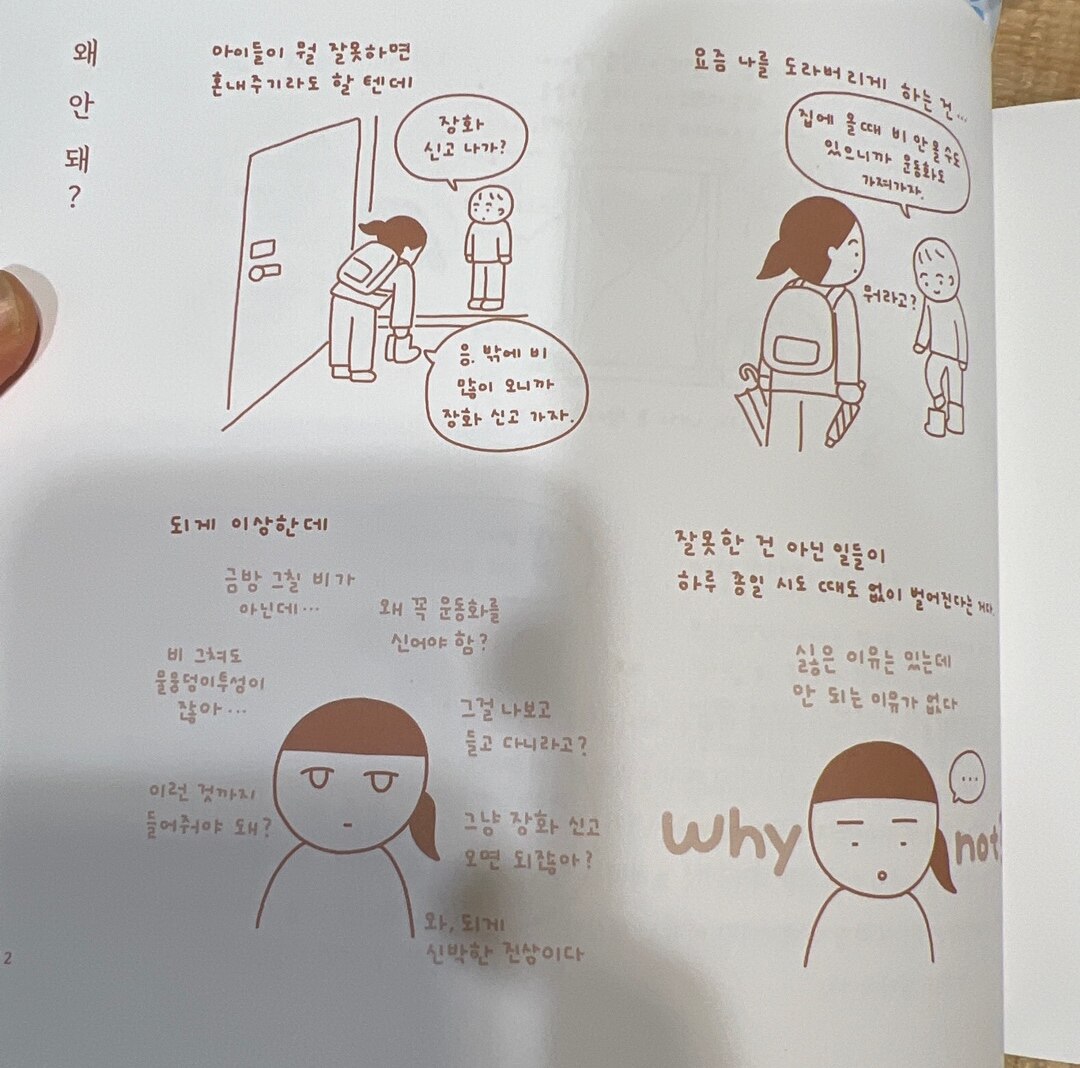 왜
안
돼
?
아이들이 뭘 잘못하면
혼내주기라도 할 텐데
장화
신고 나가?
응. 밖에 비
많이 오니까
장화 신고 가자.
요즘 나를 도라버리게 하는 건...
집에 올때 비 안 올 수도
있으니까 운동화도
가져가자.
뭐라고?
되게 이상한데
금방 그칠 비가
아닌데...
왜 꼭 운동화를
신어야 함?
비 그쳐도
물웅덩이투성이
잖아...
그걸 나보고
들고 다니라고?
이런 것까지
들어줘야 돼?
그냥 장화 신고
오면 되잖아?
와, 되게
신박한 진상이다
잘못한 건 아닌 일들이
하루 종일 시도 때도 없이 벌어진다는 거다.
싫은 이유는 있는데
안 되는 이유가 없다
...
why not
2